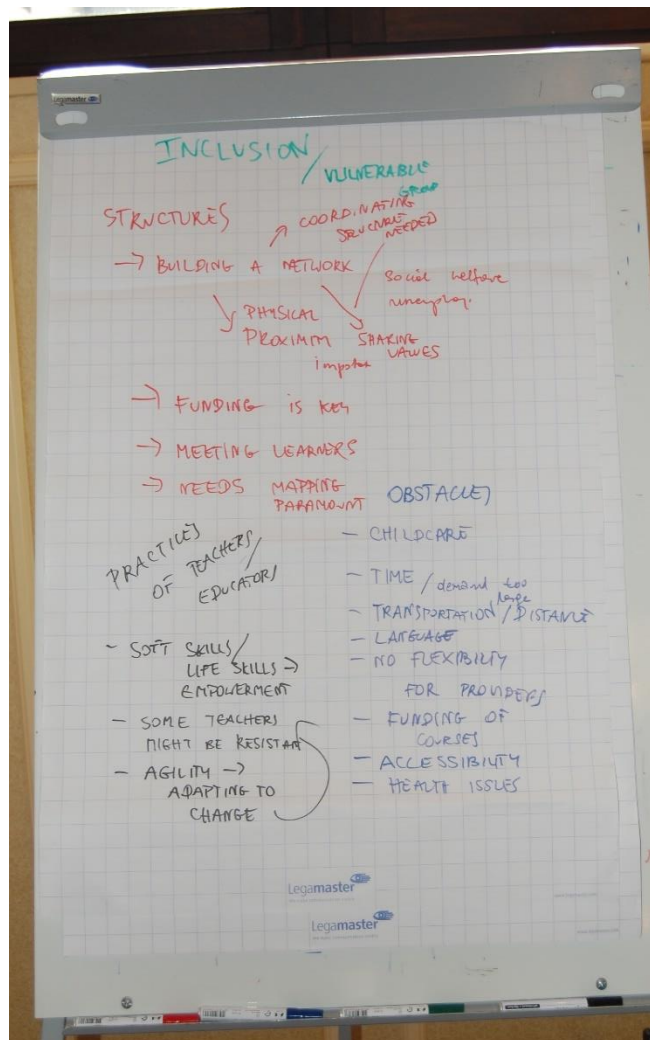 Legamaster
INCLUSION /
VULNERABLE
GROUP
STRUCTURES
COORDINATING
STRUCTURE
NEEDED
→ BUILDING A NETWORK
social welfare
unemploy.
PHYSICAL
PROXIMITY
SHARING
VALUES
→ FUNDING IS KEY
→ MEETING LEARNERS
→ NEEDS MAPPING
PARAMOUNT
PRACTICES
OF TEACHERS/
EDUCATORS
- SOFT SKILLS/
LIFE SKILLS →
EMPOWERMENT
- SOME TEACHERS
MIGHT BE RESISTAN
- AGILITY →
ADAPTING TO
CHANGE
OBSTACLES
- CHILDCARE
- TIME / demand too
large
- TRANSPORTATION / DISTANCE
- LANGUAGE
- NO FLEXIBILTY
FOR PROVIDERS
- FUNDING OF
COURSES
- ACCESSIBILITY
- HEALTH ISSUES
Legamaster
Legamaster